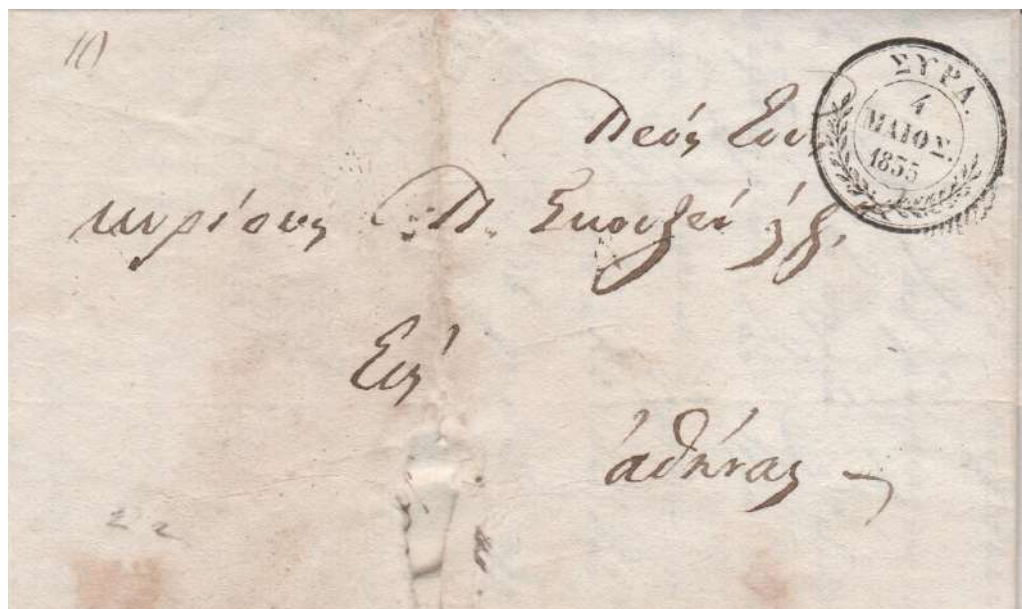 10
ΣΥΡΑ.
4
ΜΑΙΟΣ.
1855
Πρός τους
κυρίους Π. Σκουζεί
Εις
ἀθήνας